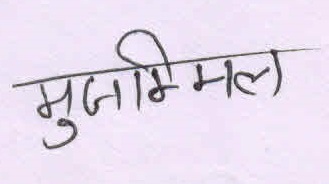 मुजामिमल